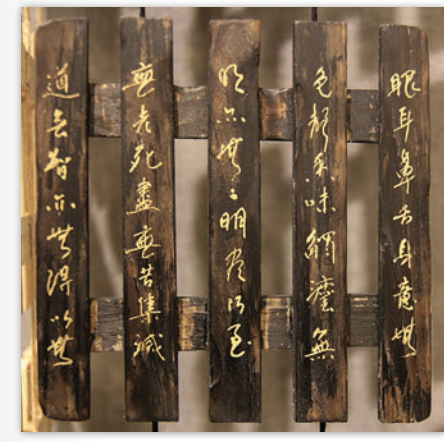 眼耳鼻舌身意無
色聲香味觸灋無
明亦無々明盡乃至
無老死盡無苦集滅
道无智亦無得以無